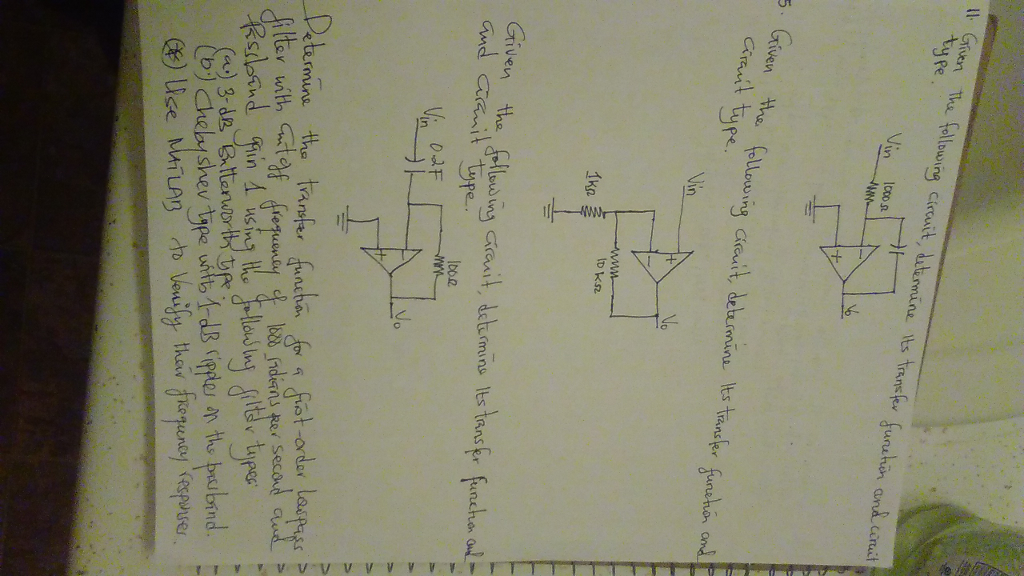 11. Given The following circuit, determine its transfer function and circuit
type.
Vin
1000Ω
Vo
5. Given the following circuit, determine its transfer function and
circuit type.
Vin
1kΩ
10 kΩ
Vo
Given the following circuit, determine its transfer function and
and circuit type.
Vin
100Ω
Vo
Determine the transfer function for a first-order Lowpass
filter with cutoff frequency of radians per second and
passband gain 1 using the following filter types
(a.) 3-dB Butterworth type
(b.) Chebyshev type with 1-dB ripple on the passband.
Use MATLAB to verify their frequency responses.